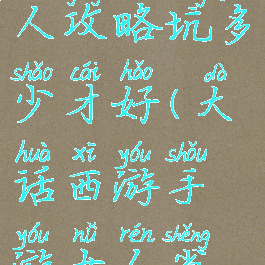 人攻略坑多
shǎo cái hǎo dà
少才好(大
huà xī yóu shǒu
话西游手
yóu nǚ rén shěng
游女人省